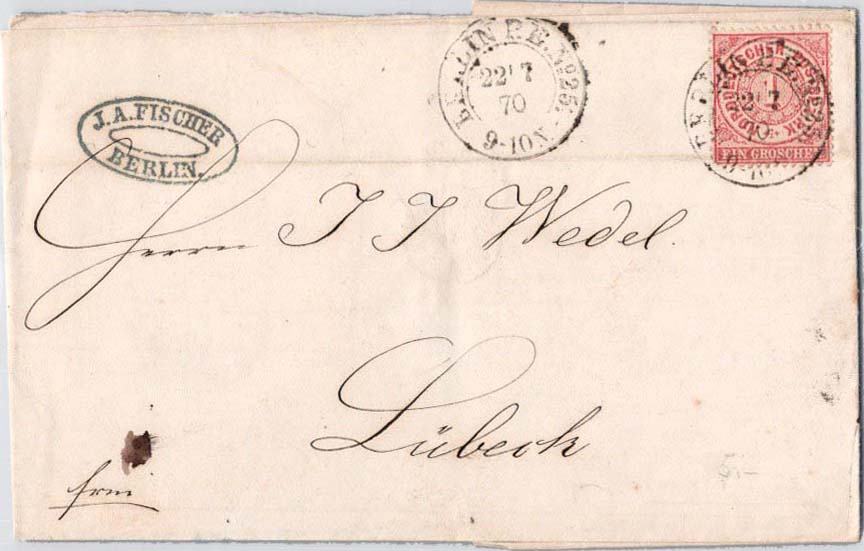 J. A. FISCHER
BERLIN.
BERLIN P.E. No 25.
22 7
70
9-10N
NORDDEUTSCHER POSTBEZIRK
1
EIN GROSCHEN
Herrn J J Wedel.
Lübeck
frei